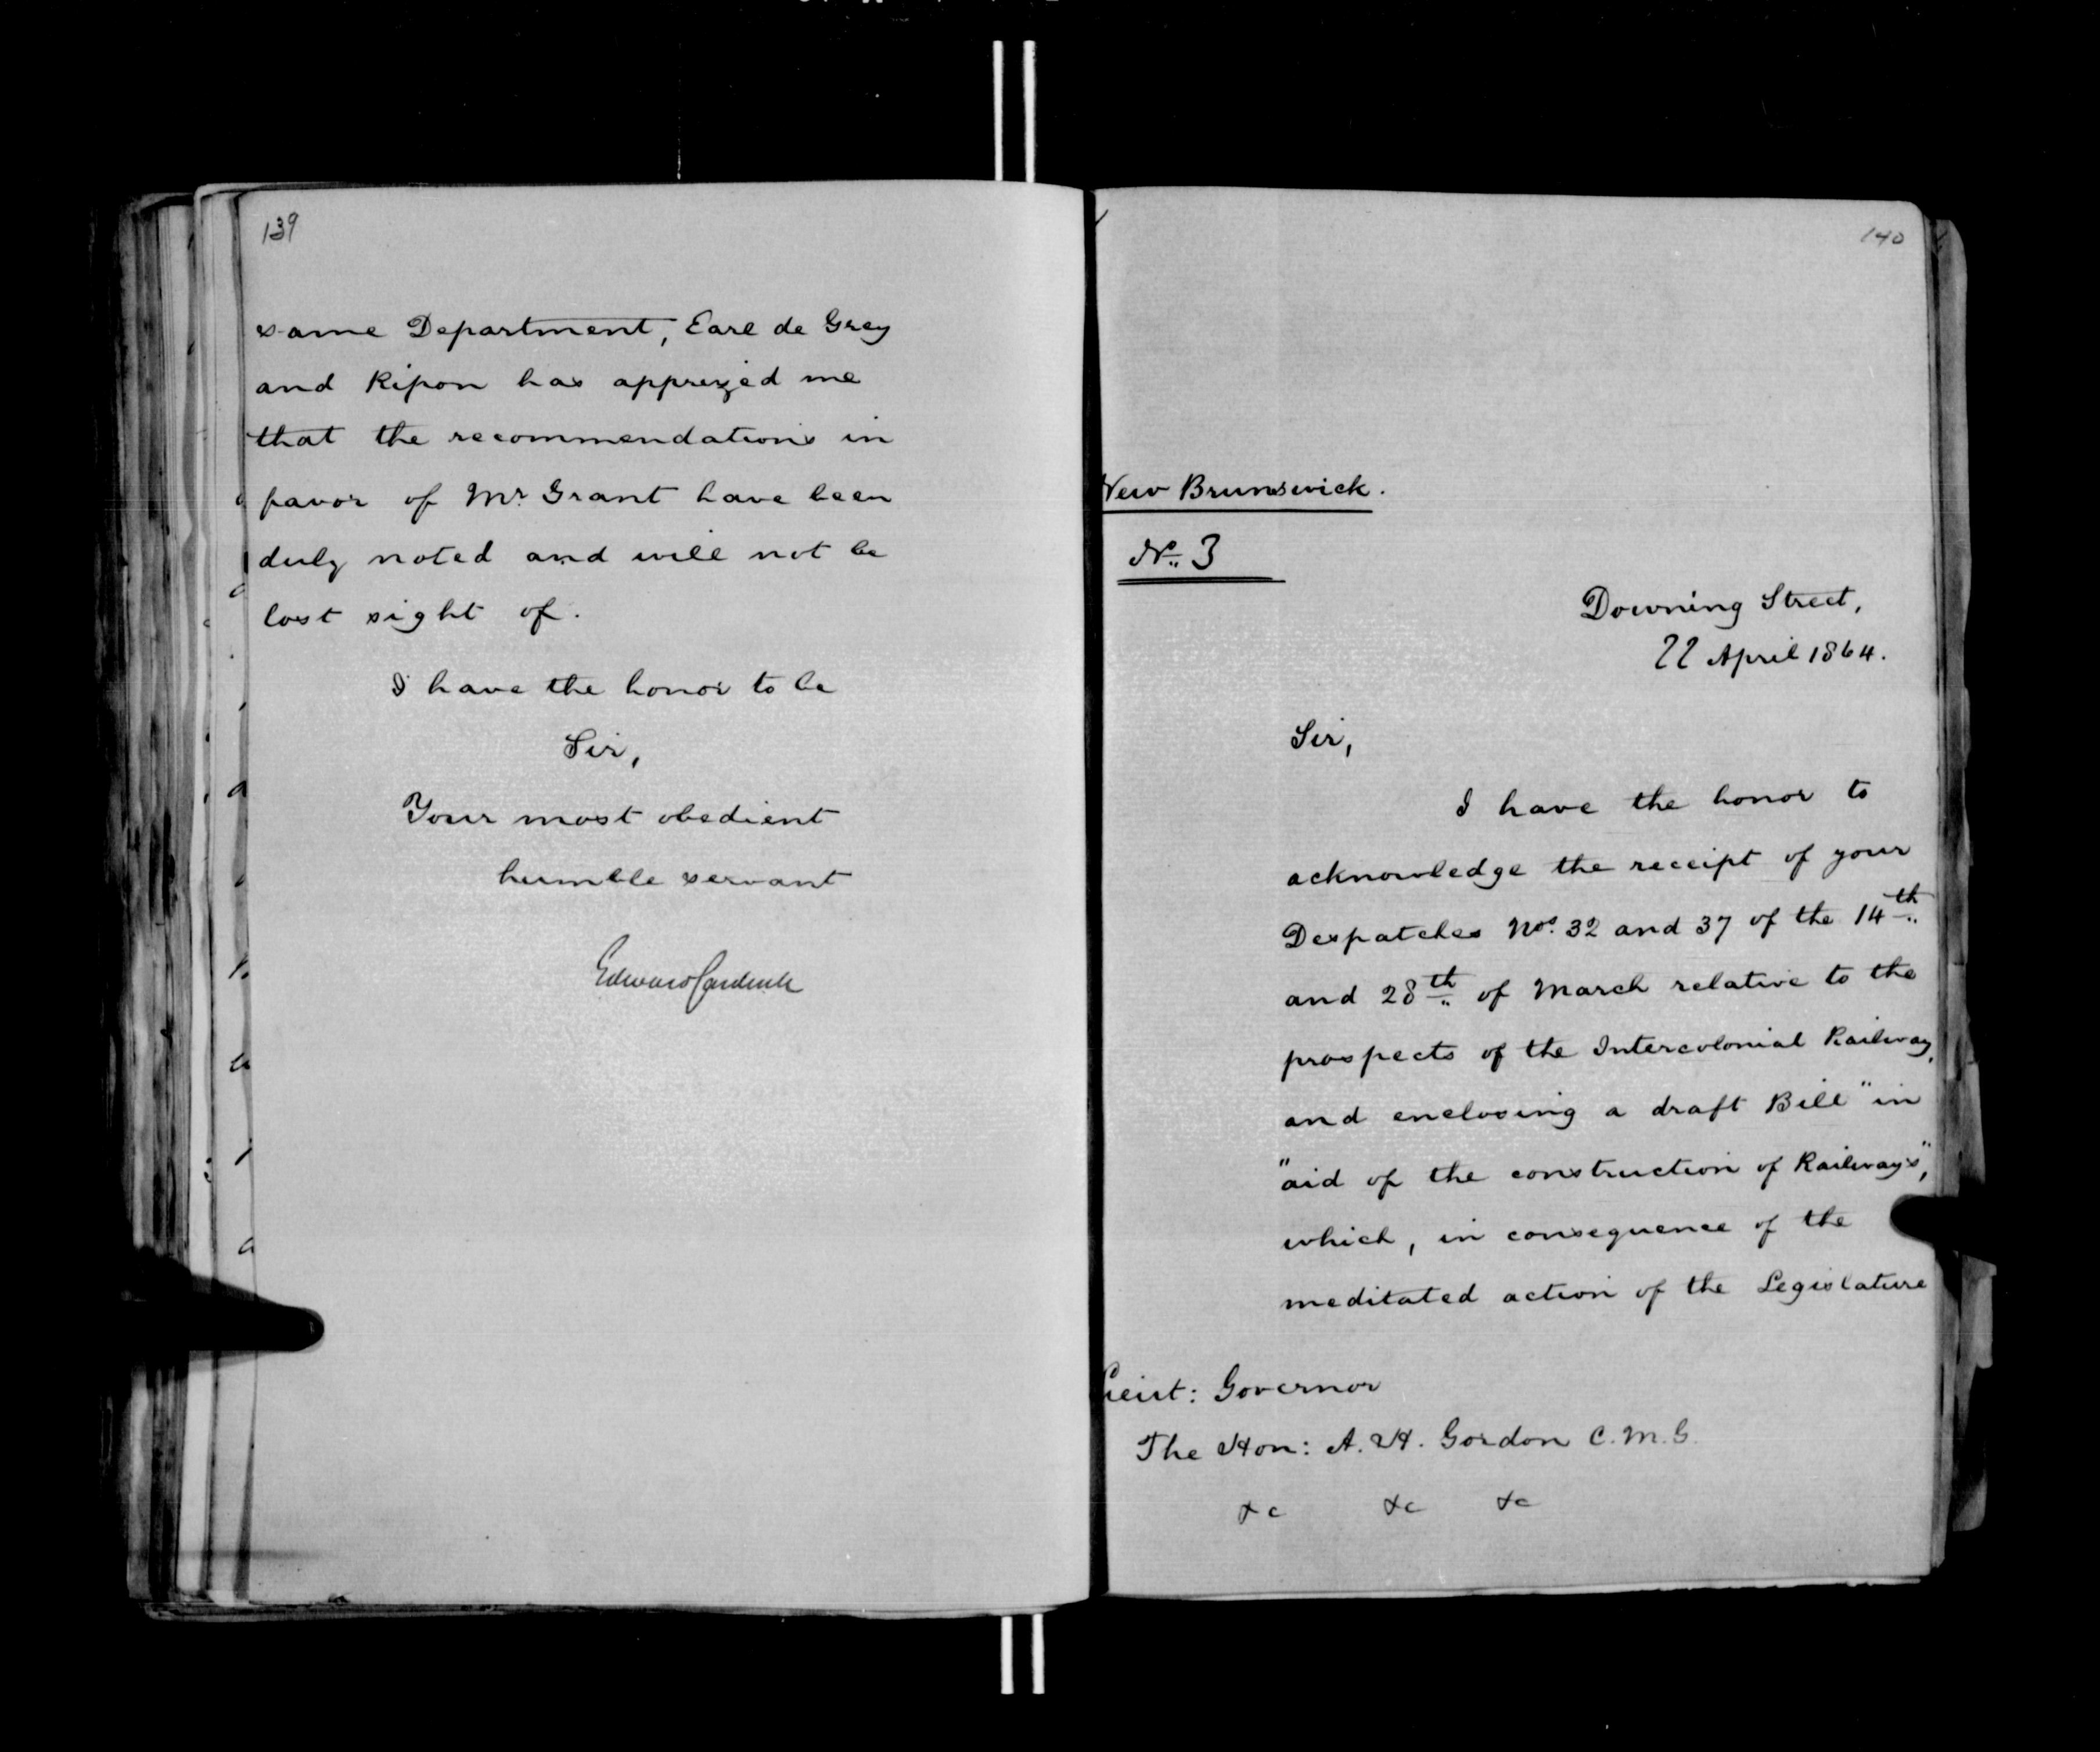 139
same Department, Earl de Grey
and Ripon has apprized me
that the recommendations in
favor of Mr. Grant have been
duly noted and will not be
lost sight of.
I have the honor to be
Sir,
Your most obedient
humble servant
Edward Cardwell
140
New Brunswick.
No. 3
Downing Street,
22 April 1864.
Sir,
I have the honor to
acknowledge the receipt of your
Despatches Nos. 32 and 37 of the 14th
and 28th of March relative to the
prospects of the Intercolonial Railway,
and enclosing a draft Bill "in
"aid of the construction of Railways",
which, in consequence of the
meditated action of the Legislature
Lieut: Governor
The Hon: A. H. Gordon C.M.G.
&c &c &c